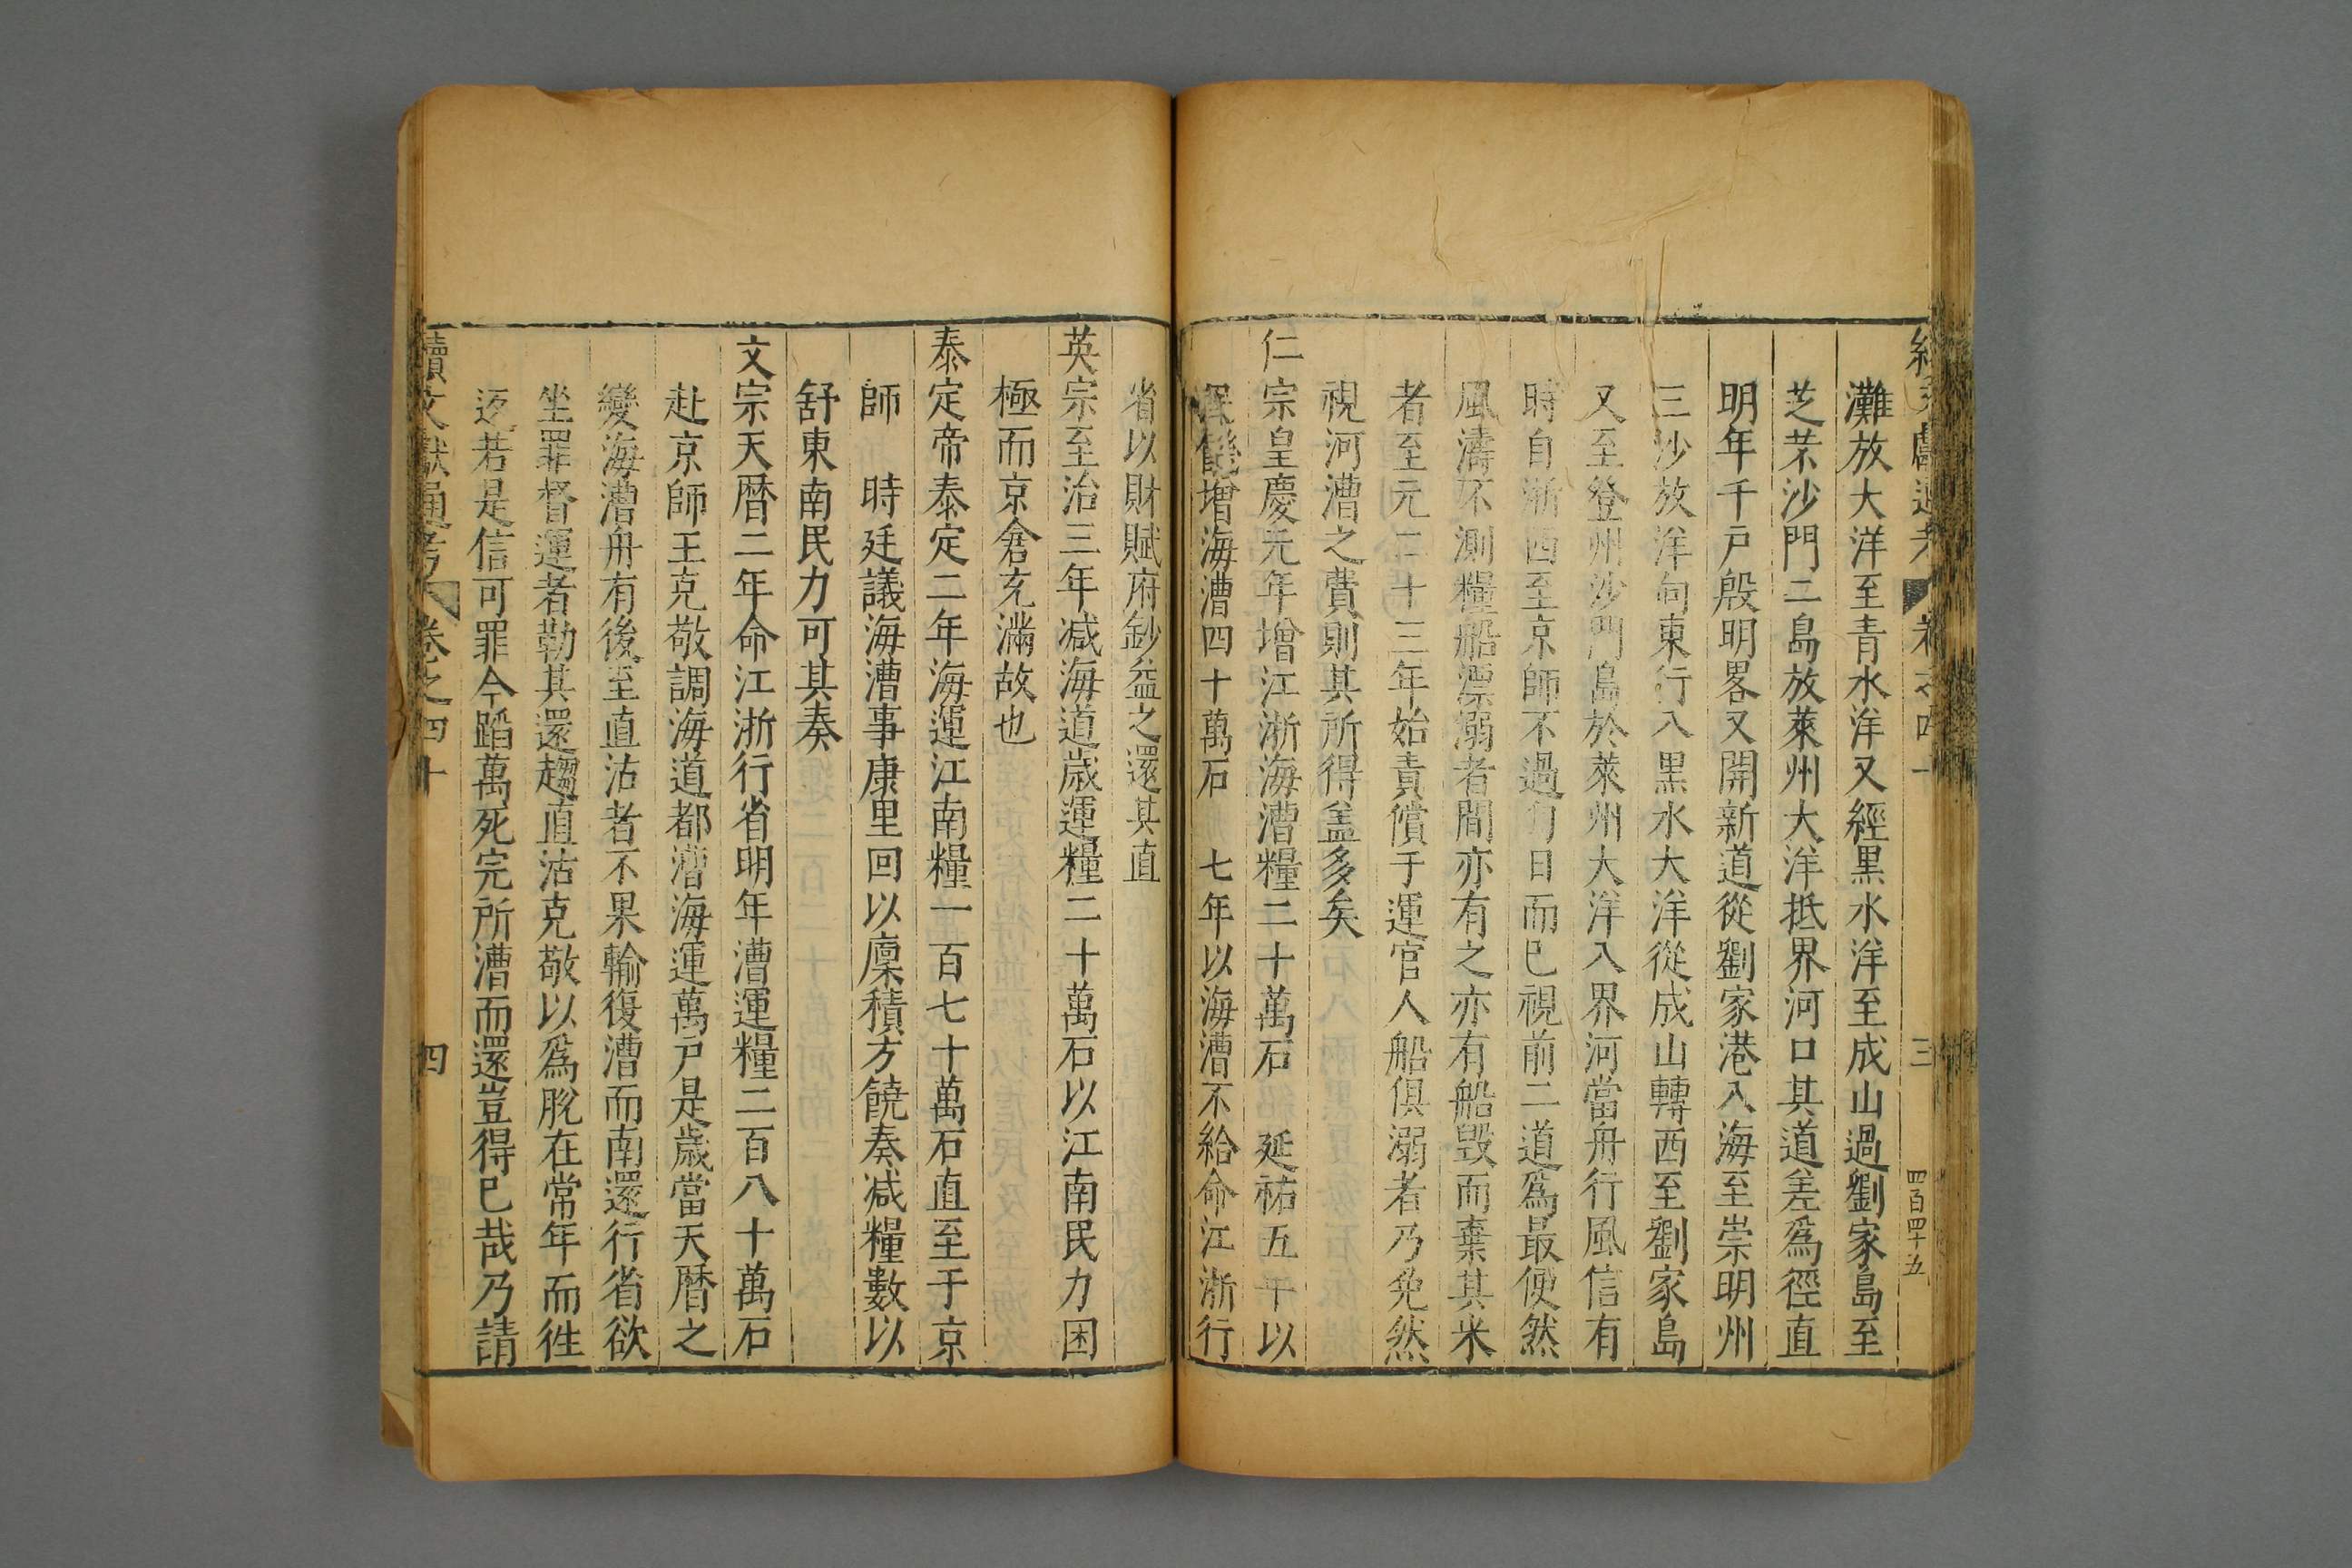 續文獻通考 卷之四十 三 四百四十五
灘放大洋至青水洋又經黒水洋至成山過劉家島至
芝罘沙門二島放萊州大洋抵界河口其道差爲徑直
明年千戸殷明畧又開新道從劉家港入海至崇明州
三沙放洋向東行入黒水大洋從成山轉西至劉家島
又至登州沙門島於萊州大洋入界河當舟行風信有
時自浙西至京師不過旬日而已視前二道爲最便然
風濤不測糧船漂溺者間亦有之亦有船毀而棄其米
者至元二十三年始責償于運官人船俱溺者乃免然
視河漕之費則其所得盖多矣
仁宗皇慶元年增江浙海漕糧二十萬石 延祐五年以
饑增海漕四十萬石 七年以海漕不給命江浙行
省以財賦府鈔益之還其直
英宗至治三年减海道歲運糧二十萬石以江南民力困
極而京倉充滿故也
泰定帝泰定二年海運江南糧一百七十萬石直至于京
師 時廷議海漕事康里回以廩積方饒奏减糧數以
舒東南民力可其奏
文宗天曆二年命江浙行省明年漕運糧二百八十萬石
赴京師王克敬調海道都漕海運萬戸是歲當天曆之
變海漕舟有後至直沽者不果輸復漕而南還行省欲
坐罪督運者勒其還趨直沽克敬以爲脫在常年而徃
返若是信可罪今蹈萬死完所漕而還豈得已哉乃請
續文獻通考 卷之四十 四